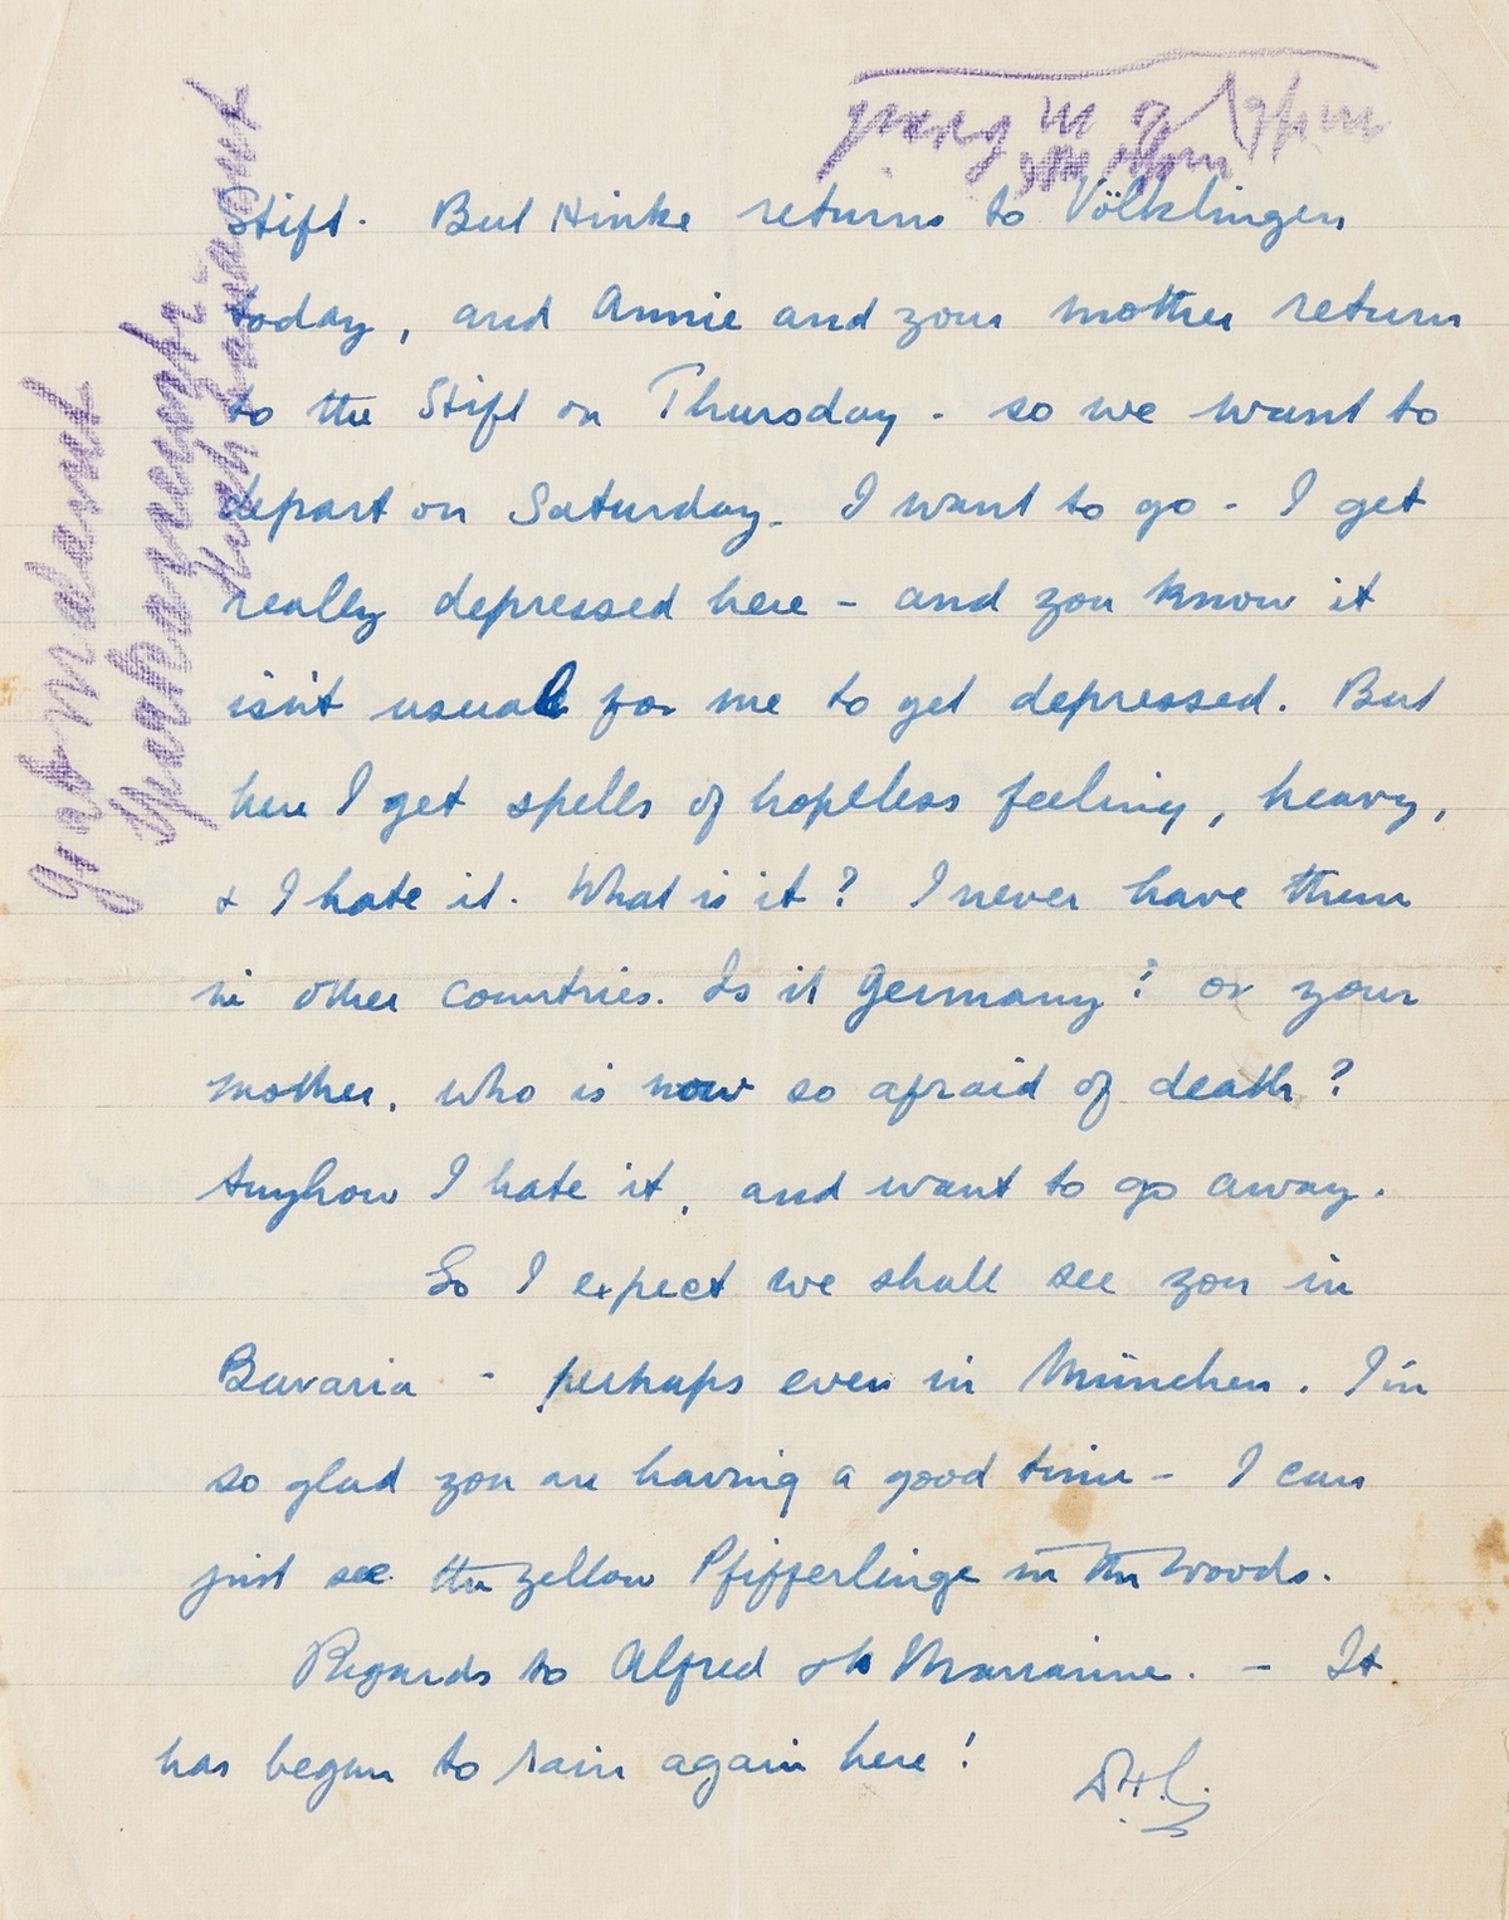 Stift. But Hinke returns to Völklingen
today, and Annie and your mother return
to the Stift on Thursday - so we want to
depart on Saturday. I want to go - I get
really depressed here - and you know it
isn't usual for me to get depressed. But
here I get spells of hopeless feeling, heavy,
& I hate it. What is it? I never have them
in other countries. Is it Germany? or your
mother, who is now so afraid of death?
Anyhow I hate it, and want to go away.
So I expect we shall see you in
Bavaria - perhaps even in München. I'm
so glad you are having a good time - I can
just see the yellow Pfifferlinge in the woods.
Regards to Alfred & to Marianne. - It
has begun to rain again here!
DHL.